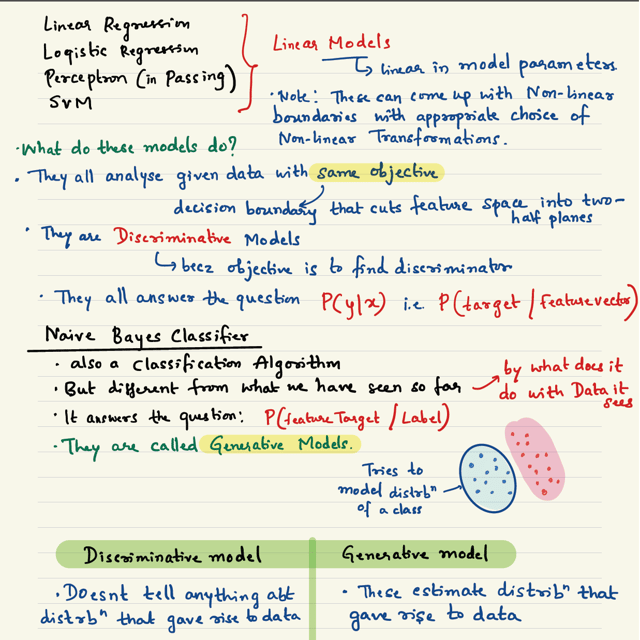 Linear Regression
Logistic Regression
Perceptron (in Passing)
SVM
Linear Models
↳ linear in model parameters
• Note: These can come up with Non-linear
boundaries with appropriate choice of
Non-linear Transformations.
• What do these models do?
• They all analyse given data with same objective
decision boundary that cuts feature space into two-
half planes
• They are Discriminative Models
↳ becz objective is to find discriminator
• They all answer the question P(y|x) i.e P(target / feature vector)
Naive Bayes Classifier
• also a Classification Algorithm
• But different from what we have seen so far → by what does it
do with Data it
sees
• It answers the question: P(feature Target / Label)
• They are called Generative Models.
Tries to
model distrbⁿ
of a class
Discriminative model
Generative model
• Doesnt tell anything abt
distrbⁿ that gave rise to data
• These estimate distribⁿ that
gave rise to data